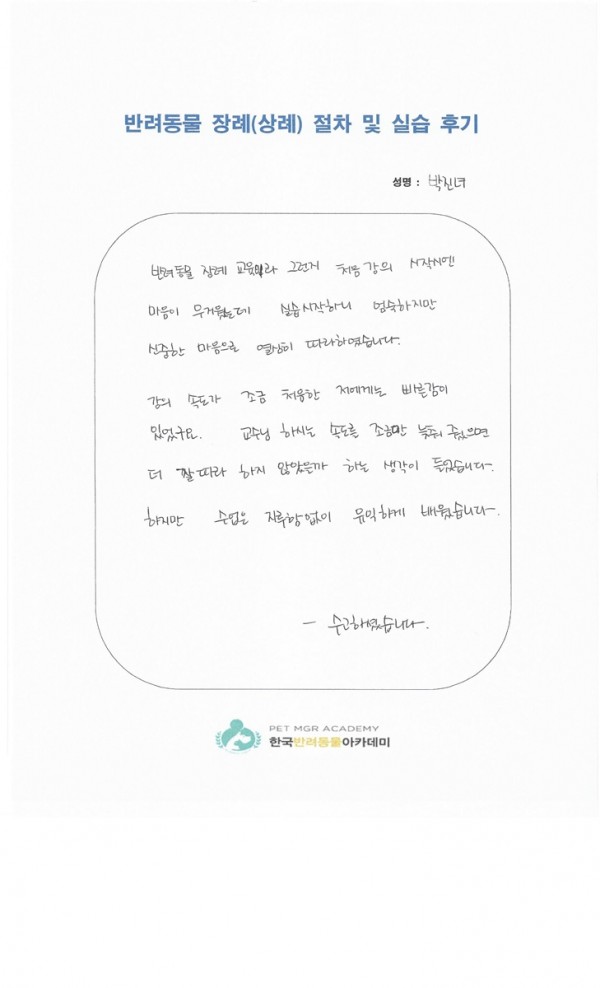 반려동물 장례(상례) 절차 및 실습 후기
성명 : 박진녀
반려동물 장례 교육이라 그런지 처음 강의 시작시엔
마음이 무거웠는데 실습시작하니 엄숙하지만
신중한 마음으로 열심히 따라하였습니다.
강의 속도가 조금 처음한 저에게는 빠른감이
있었구요. 교수님 하시는 속도를 조금만 늦춰 주셨으면
더 잘 따라 하지 않았을까 하는 생각이 들었습니다.
하지만 수업은 지루함없이 유익하게 배웠습니다.
- 수고하셨습니다.
PET MGR ACADEMY
한국반려동물아카데미